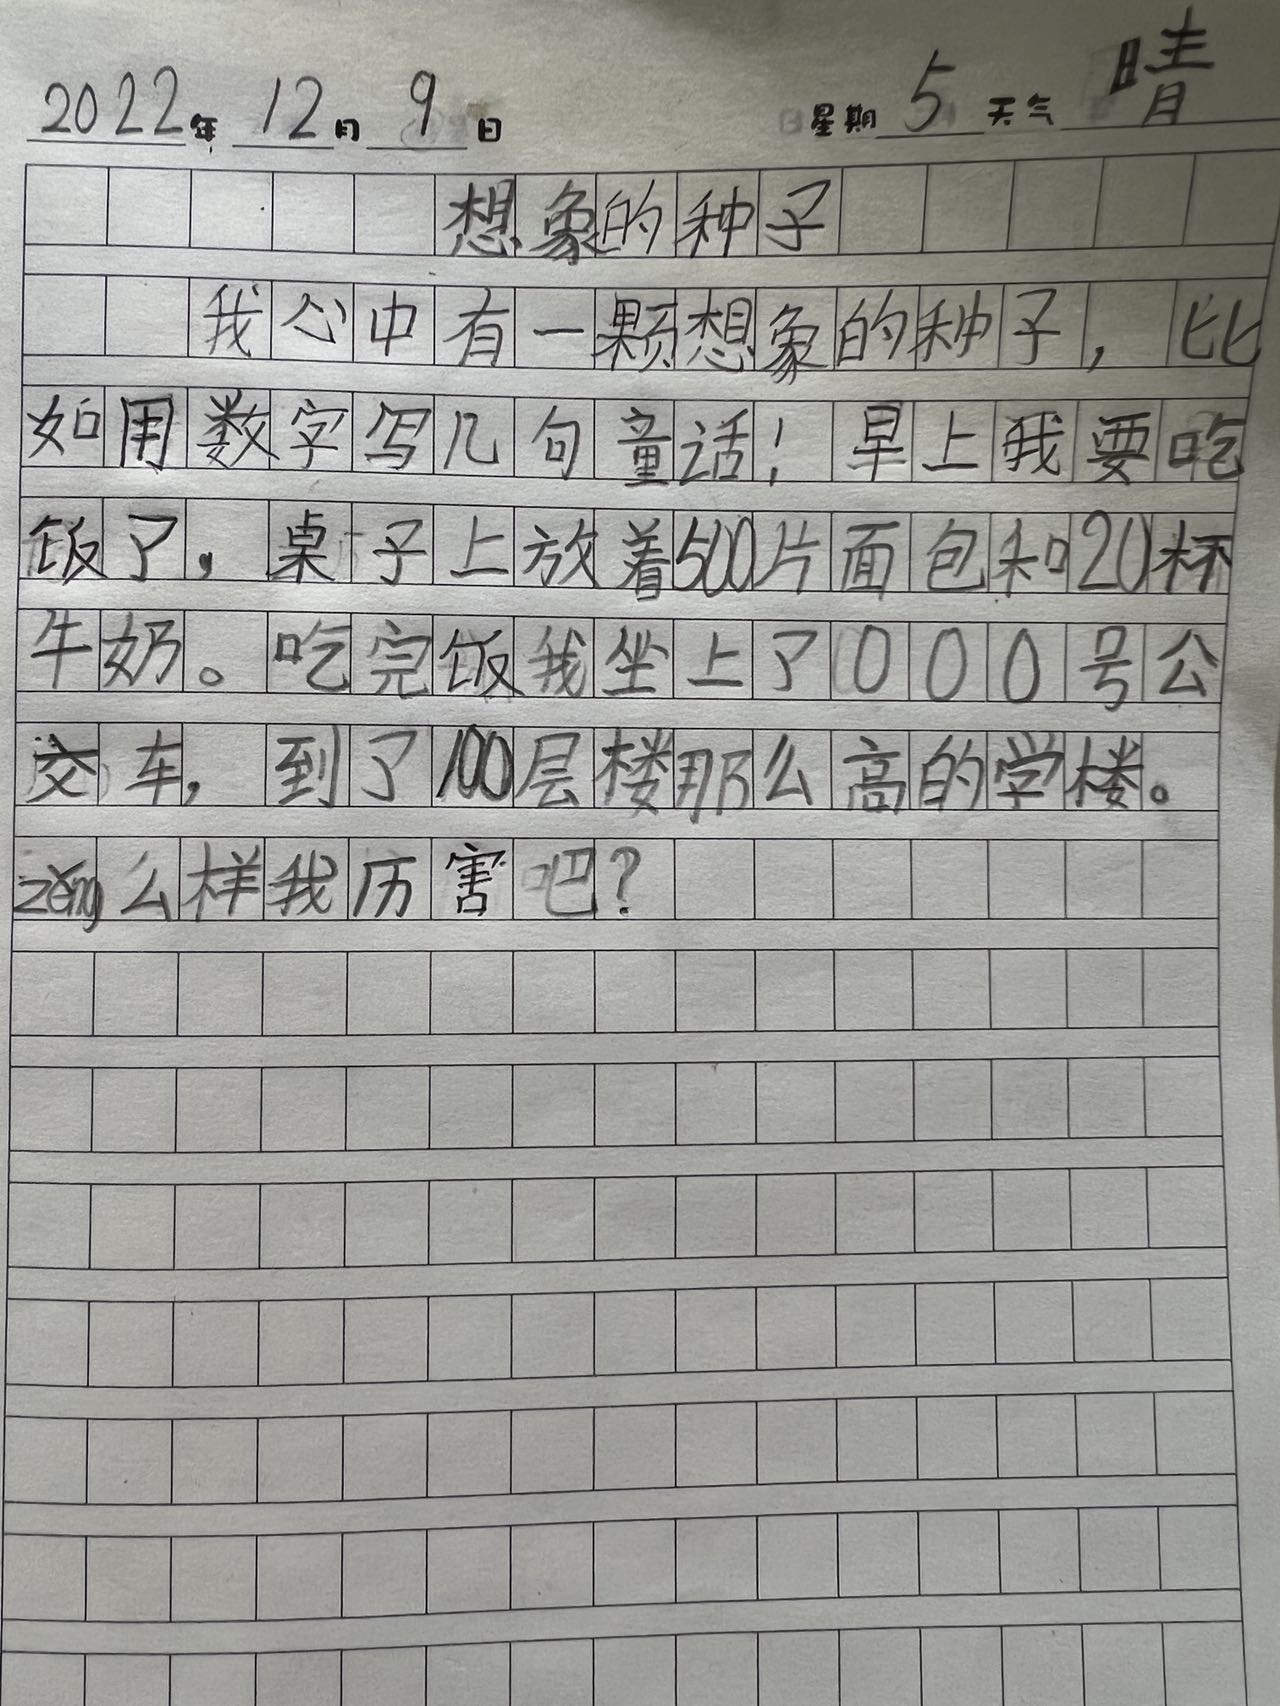 2022年12月9日 星期5天气晴
想象的种子
我心中有一颗想象的种子，比
如用数字写几句童话！早上我要吃
饭了，桌子上放着500片面包和20杯
牛奶。吃完饭我坐上了000号公
交车，到了100层楼那么高的学楼。
zěng么样我历害吧？